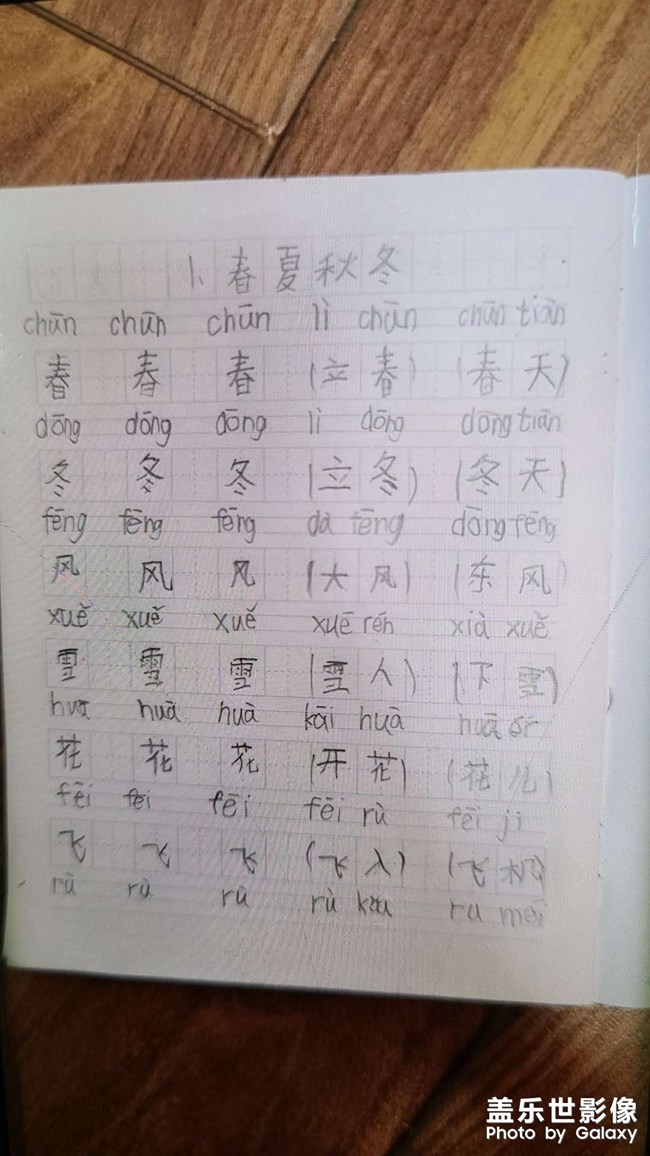 1、春夏秋冬
chūn chūn chūn lì chūn chūn tiān
春 春 春 (立春) (春天)
dōng dōng dōng lì dōng dōng tiān
冬 冬 冬 (立冬) (冬天)
fēng fēng fēng dà fēng dōng fēng
风 风 风 (大风) (东风)
xuě xuě xuě xuě rén xià xuě
雪 雪 雪 (雪人) (下雪)
huā huà huà kāi huà huā ér
花 花 花 (开花) (花儿)
fēi fēi fēi fēi rù fēi jī
飞 飞 飞 (飞入) (飞机)
rù rù rù rù kǒu ru mén
盖乐世影像
Photo by Galaxy